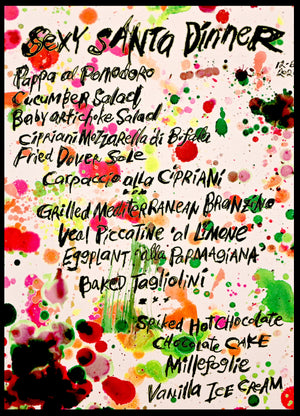 Sexy Santa Dinner
Pappa al Pomodoro
Cucumber Salad
Baby artichoke Salad
Cipriani Mozzarella di Bufella
Fried Dover Sole
Carpaccio alla CIPRIANI
***
Grilled MediTERRANEAN BRANZINO
Veal Piccatine 'al LIMONE
EggPLANT 'alla PARMAGIANA
BAKED TAGLIOLINI
***
Spiked HOT CHOCOLATE
CHOCOLATE CAKE
Millefoglie
Vanilla ICE CREAM